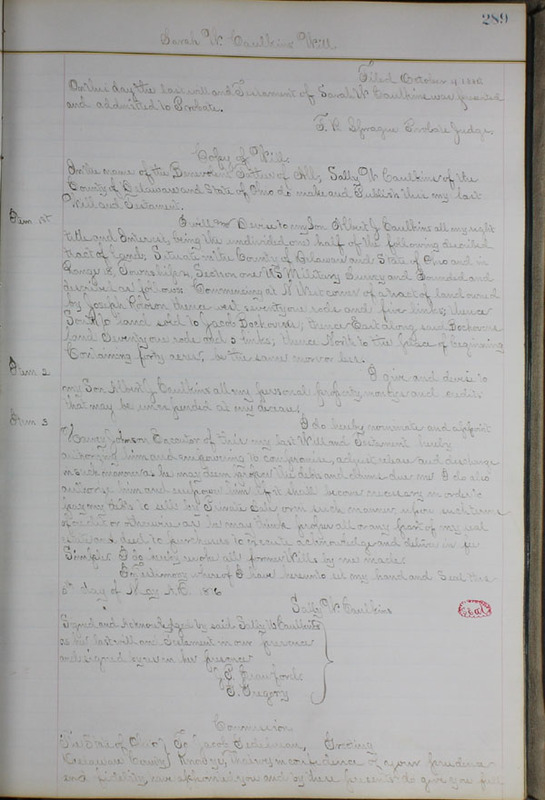 289
Sarah W. Caulkins Will
Filed October 4 1886
On this day the last will and Testament of Sarah W Caulkins was presented
and admitted to Probate.
F. R. Sprague Probate Judge
Copy of Will.
In the name of the Benevolent Father of All; Sally W Caulkins of the
County of Delaware and State of Ohio do make and Publish this my last
Will and Testament.
Item 1st I will and Devise to my Son Albert J Caulkins all my right
title and Interest, being the undivided one half of the following described
tract of Land; Situate in the County of Delaware and State of Ohio and in
Range 18, Township Section one US Military Survey and Bounded and
described as follows Commencing at N West corner of a tract of land owned
by Joseph thence west seventy one rods and five links; thence
South to land sold to Jacob thence East along said
land Seventy one rods and 5 links; thence North to the place of beginning
Containing forty acres, be the same more or less.
Item 2 I give and devise to
my Son Albert J Caulkins all my personal property moneys and credits
that may be unexpended at my decease.
Item 3 I do hereby nominate and appoint
Johnson Executor of this my last Will and Testament hereby
authorizing him and empowering to compromise, adjust release and discharge
in such manner as he may deem proper the debts and claims due me. I do also
authorize him and empower him if it shall become necessary in order to
pay my debts to sell by Private Sale or in such manner, upon such terms
of credit or otherwise as he may think proper all or any part of my real
estate and deed to purchasers to execute acknowledge and deliver in fee
Simple. I do hereby revoke all former Wills by me made.
In testimony whereof I have hereunto set my hand and Seal this
day of May A.D. 1876
Sally W Caulkins Seal
Signed and Acknowledged by said Sally W Caulkins
as her last will and Testament in our presence
and signed by us in her presence
J. Crawford
T. Gregory
Commission
The State of Ohio To Jacob Greeting
Delaware County Know ye, That we in confidence of your prudence
and fidelity, have appointed you and by these presents do give you full